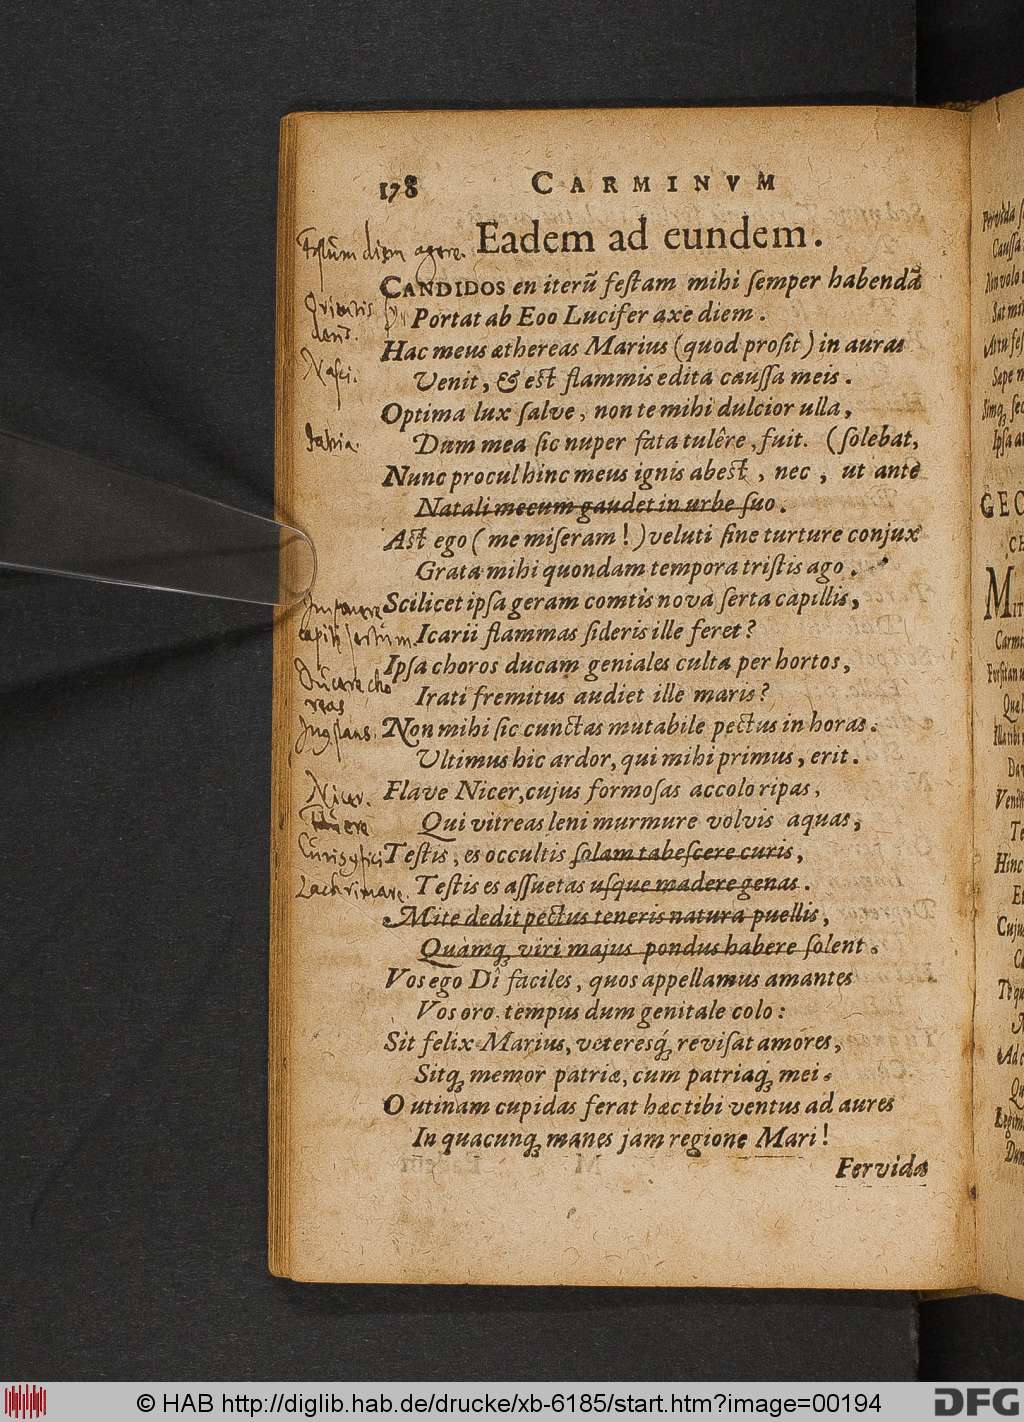 178 CARMINVM
Festum diem agere.
Eadem ad eundem.
CANDIDOS en iterū feſtam mihi ſemper habendā
Orientis
Portat ab Eoo Lucifer axe diem.
Hac meus æthereas Marius (quod proſit) in auras
Nasci.
Venit, & eſt flammis edita cauſſa meis.
Optima lux ſalve, non te mihi dulcior ulla,
Dum mea ſic nuper fata tulêre, fuit. (ſolebat,
Nunc procul hinc meus ignis abeſt, nec, ut ante
Natali mecum gaudet in urbe ſuo.
Aſt ego (me miſeram!) veluti ſine turture conjux
Grata mihi quondam tempora triſtis ago.
Imponere
Scilicet ipſa geram comtis nova ſerta capillis,
capiti sertum.
Icarii flammas ſideris ille feret?
Ipſa choros ducam geniales culta per hortos,
Ducere cho
reas
Irati fremitus audiet ille maris?
Non mihi ſic cunctas mutabile pectus in horas.
Ultimus hic ardor, qui mihi primus, erit.
Nicer.
Flave Nicer, cujus formoſas accolo ripas,
Qui vitreas leni murmure volvis aquas,
Teſtis, es occultis ſolam tabeſcere curis,
Lachrimare.
Teſtis es aſſuetas uſque madere genas.
Mite dedit pectus teneris natura puellis,
Quàmq; viri majus pondus habere ſolent.
Vos ego Dî faciles, quos appellamus amantes
Vos oro, tempus dum genitale colo:
Sit felix Marius, veteresq́; reviſat amores,
Sitq; memor patriæ, cum patriaq; mei.
O utinam cupidas ferat hæc tibi ventus ad aures
In quacunq; manes jam regione Mari!
Fervida
© HAB http://diglib.hab.de/drucke/xb-6185/start.htm?image=00194
DFG